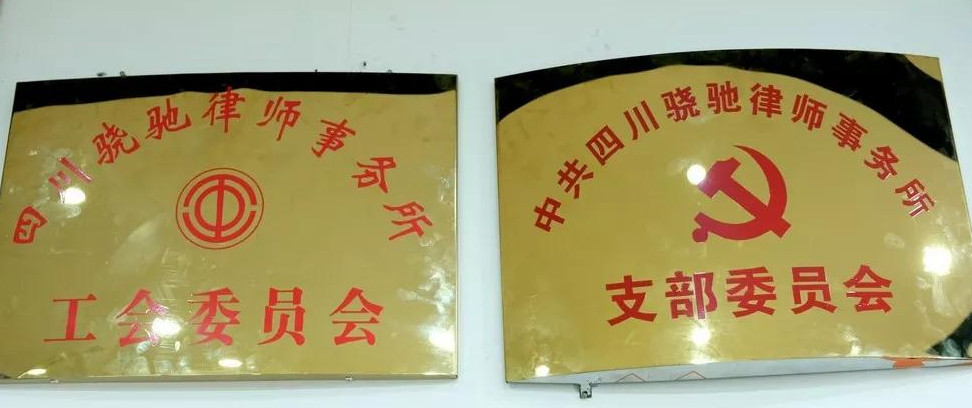 四川骁驰律师事务所
工会委员会
中共四川骁驰律师事务所
支部委员会